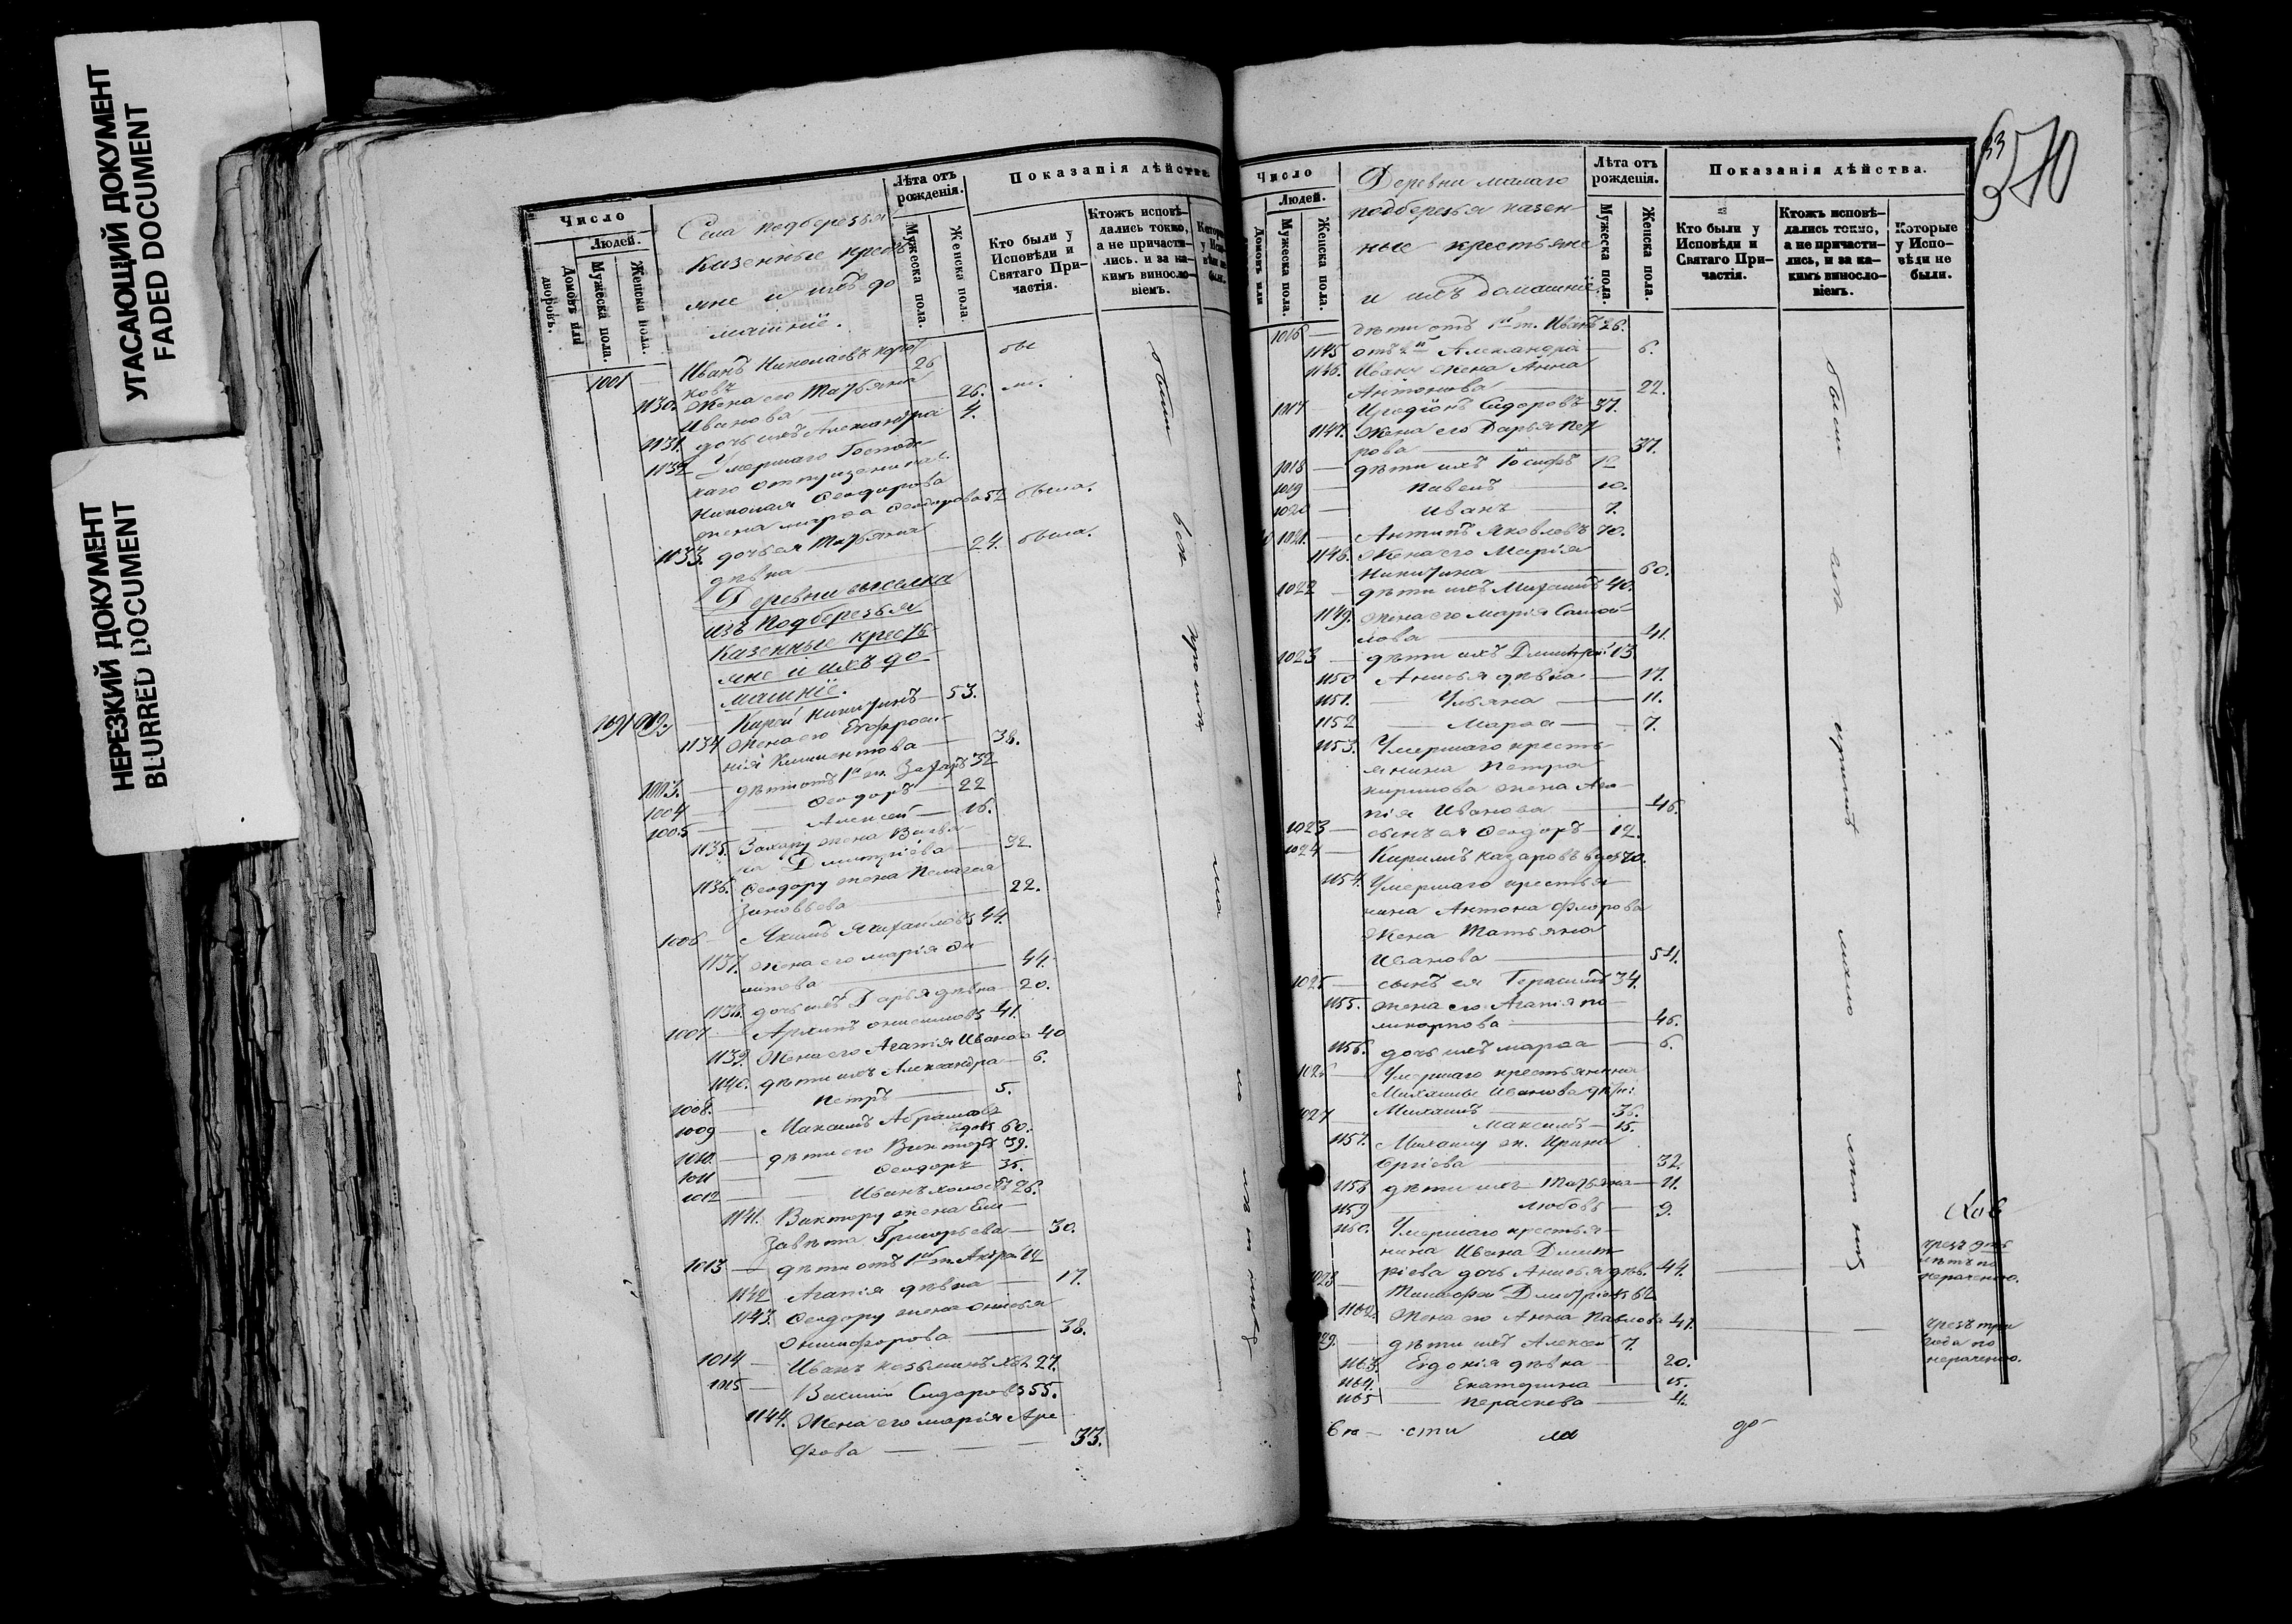 УГАСАЮЩИЙ ДОКУМЕНТ
FADED DOCUMENT
НЕРЕЗКИЙ ДОКУМЕНТ
BLURRED DOCUMENT
Число
Людей.
Домовъ или дворовъ.
Мужеска пола.
Женска пола.
Села Подберезья
Казенные кресть
яне и ихъ до
машніе.
Лѣта отъ рожденія.
Мужеска пола.
Женска пола.
Показанія дѣйства.
Кто были у Исповѣди и Святаго Причастія.
Ктожъ исповѣдались токмо, а не причастились. и за какимъ винословіемъ.
1001 — Иванъ Николаевъ
ковъ — 26
1130. Жена его Татьяна
Иванова — 26.
1131. дочь ихъ Александра 4.
1132 Умершаго Господс
каго отпущенника
Николая Ѳеодорова
жена марѳа Ѳеодорова 52 была.
1133. дочь ея Татьяна
дѣвка — 24. была.
Деревни выселка
изъ Подберезья
Казенные кресть
яне и ихъ до
машніе.
Никитинъ — 53.
1134 Жена его Евфроси-
нія Климентова — 38.
1003. — дѣти отъ 1й ж. Захаръ 32
1004 — Ѳеодоръ — 22
1005 — Алексей — 16.
1135. Захару жена Васса
Дмитріева — 32
1136. Ѳеодору жена Пелагея
Зиновьева — 22.
1006 — Якимъ Михайловъ 44.
1137. Жена его марія
44.
1138. дочь ихъ Дарья дѣвка — 20.
1007 — Архипъ онисимовъ 41.
1139. Жена его Агапія Иванова 40
1140. дѣти ихъ Александра — 6.
1008. — Петръ — 5.
1009 — Максимъ Абрамовъ
вдовъ 60.
1010. — дѣти его Викторъ 39.
1011 — Ѳеодоръ 35.
1012 — Иванъ холостъ 26.
1141. Виктору жена Ели-
завѣта Григорьева — 30.
1013 — дѣти отъ 1й ж.
1142 Агапія дѣвка — 17.
1143. Ѳеодору жена
Онисифорова — 38.
1014 — Иванъ козьминъ 27.
1015 — Василій Сидоровъ 55.
1144. Жена его марія Аре
фова — 33.
Число
Людей.
Мужеска пола.
Женска пола.
Деревни малаго
подберезья казен-
ные крестьяне
и ихъ домашніе
Лѣта отъ рожденія.
Мужеска пола.
Женска пола.
Показанія дѣйства.
Кто были у Исповѣди и Святаго Причастія.
Ктожъ исповѣдались токмо, а не причастились, и за какимъ винословіемъ.
Которые у Исповѣди не были.
570
1016 — дѣти отъ 1й ж. Иванъ 26.
1145 отъ 2й Александра — 6.
1146. Ивану жена Анна
Антонова — 22.
1017 Иродіонъ Сидоровъ 37.
1147. Жена его Дарья Пет
рова — 37.
1018 — дѣти ихъ Іосифъ 12
1019 — Павелъ — 10.
1020 — Иванъ — 7.
1021. — Антипъ Яковлевъ 70.
1148. Жена его Марія
Никитина — 60.
1022 — дѣти ихъ Михаилъ 40.
1149. Жена его марія Самой
лова — 41.
1023 — дѣти ихъ Дмитрій 13.
1150 Анисья дѣвка — 17.
1151. — Ульяна — 11.
1152 — Марѳа — 7.
1153. Умершаго кресть-
янина Петра
кирилова жена Ага-
пія Иванова — 46.
1023 — сынъ ея Ѳеодоръ — 12.
1024 — Кирилъ Назаровъ вдов 70.
1154. Умершаго крестья-
нина Антона Флорова
Жена Татьяна
Иванова — 54.
1025 — сынъ ея Герасимъ 34.
1155. Жена его Агапія по-
ликарпова — 46.
1156. дочь ихъ марѳа — 6.
1026 — Умершаго крестьянина
Михаила Иванова дѣти:
Михаилъ — 36.
1027 — Максимъ — 15.
1157. Михаилу ж. Ирина
Ергіева — 32.
1158 дѣти ихъ Татьяна — 11.
1159 — Любовь — 9.
1160. Умершаго крестья-
нина Ивана Дмит
ріева дочь Анисья дѣв. 44.
1028 Тимофей Дмитріевъ 62
1162. Жена его Анна Павлова 47.
дѣти ихъ Алексей 7.
1163. Евдокія дѣвка — 20.
1164. — Екатерина — 15.
1165 — Параскева — 4.
чрезъ два
лѣтъ по
нераченію.
чрезъ три
года по
нераченію.
сти ли до